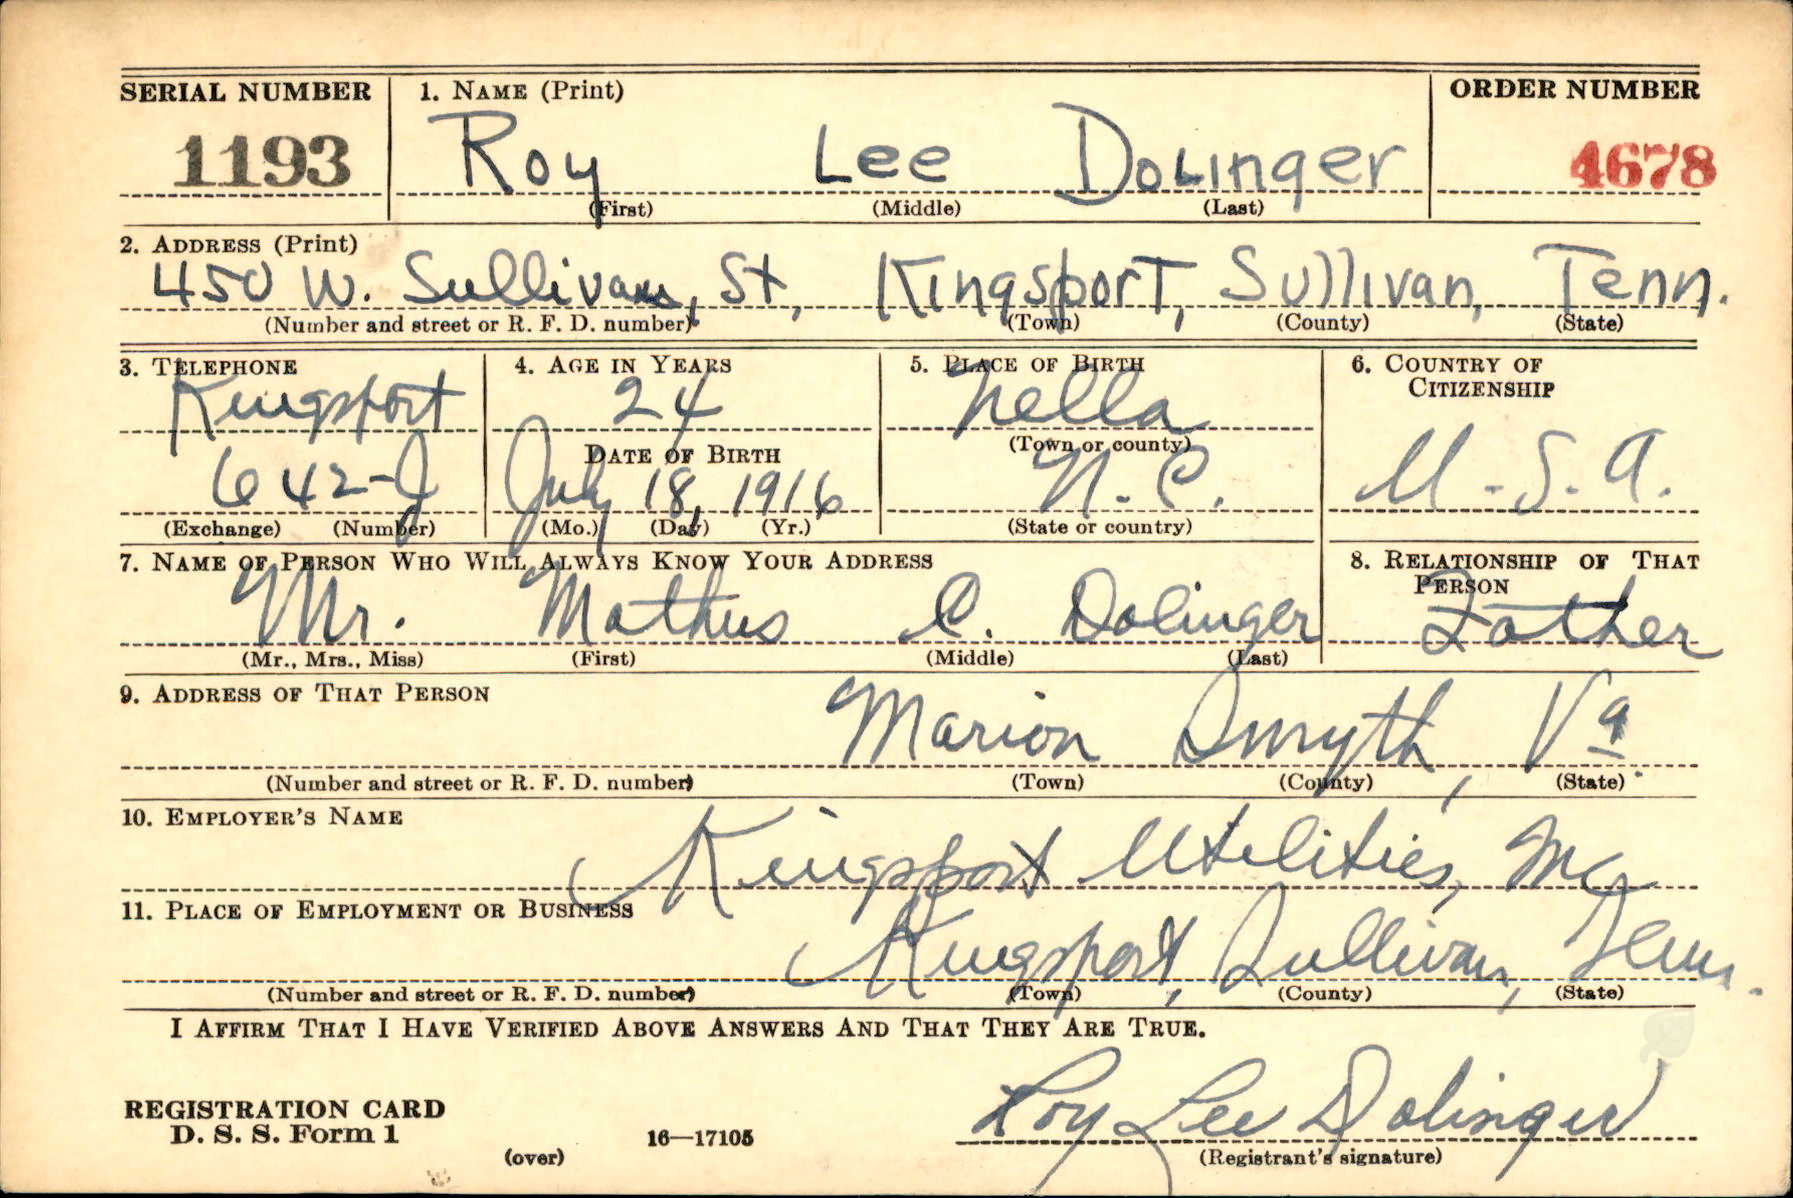 SERIAL NUMBER 1. NAME (Print) ORDER NUMBER
1193 Roy Lee Dolinger 4678
(First) (Middle) (Last)
2. ADDRESS (Print)
450 W. Sullivan, St, Kingsport, Sullivan, Tenn.
(Number and street or R. F. D. number) (Town) (County) (State)
3. TELEPHONE 4. AGE IN YEARS 5. PLACE OF BIRTH 6. COUNTRY OF CITIZENSHIP
Kingsport 24 Nella
DATE OF BIRTH (Town or county)
642-J July 18, 1916 N. C. U.S.A.
(Exchange) (Number) (Mo.) (Day) (Yr.) (State or country)
7. NAME OF PERSON WHO WILL ALWAYS KNOW YOUR ADDRESS 8. RELATIONSHIP OF THAT PERSON
Mr. Mathus C. Dolinger Father
(Mr., Mrs., Miss) (First) (Middle) (Last)
9. ADDRESS OF THAT PERSON
Marion Smyth, Va.
(Number and street or R. F. D. number) (Town) (County) (State)
10. EMPLOYER'S NAME
Kingsport Utilities, Inc
11. PLACE OF EMPLOYMENT OR BUSINESS
Kingsport, Sullivan, Tenn.
(Number and street or R. F. D. number) (Town) (County) (State)
I AFFIRM THAT I HAVE VERIFIED ABOVE ANSWERS AND THAT THEY ARE TRUE.
REGISTRATION CARD
D. S. S. Form 1 16—17105 Roy Lee Dolinger
(over) (Registrant's signature)